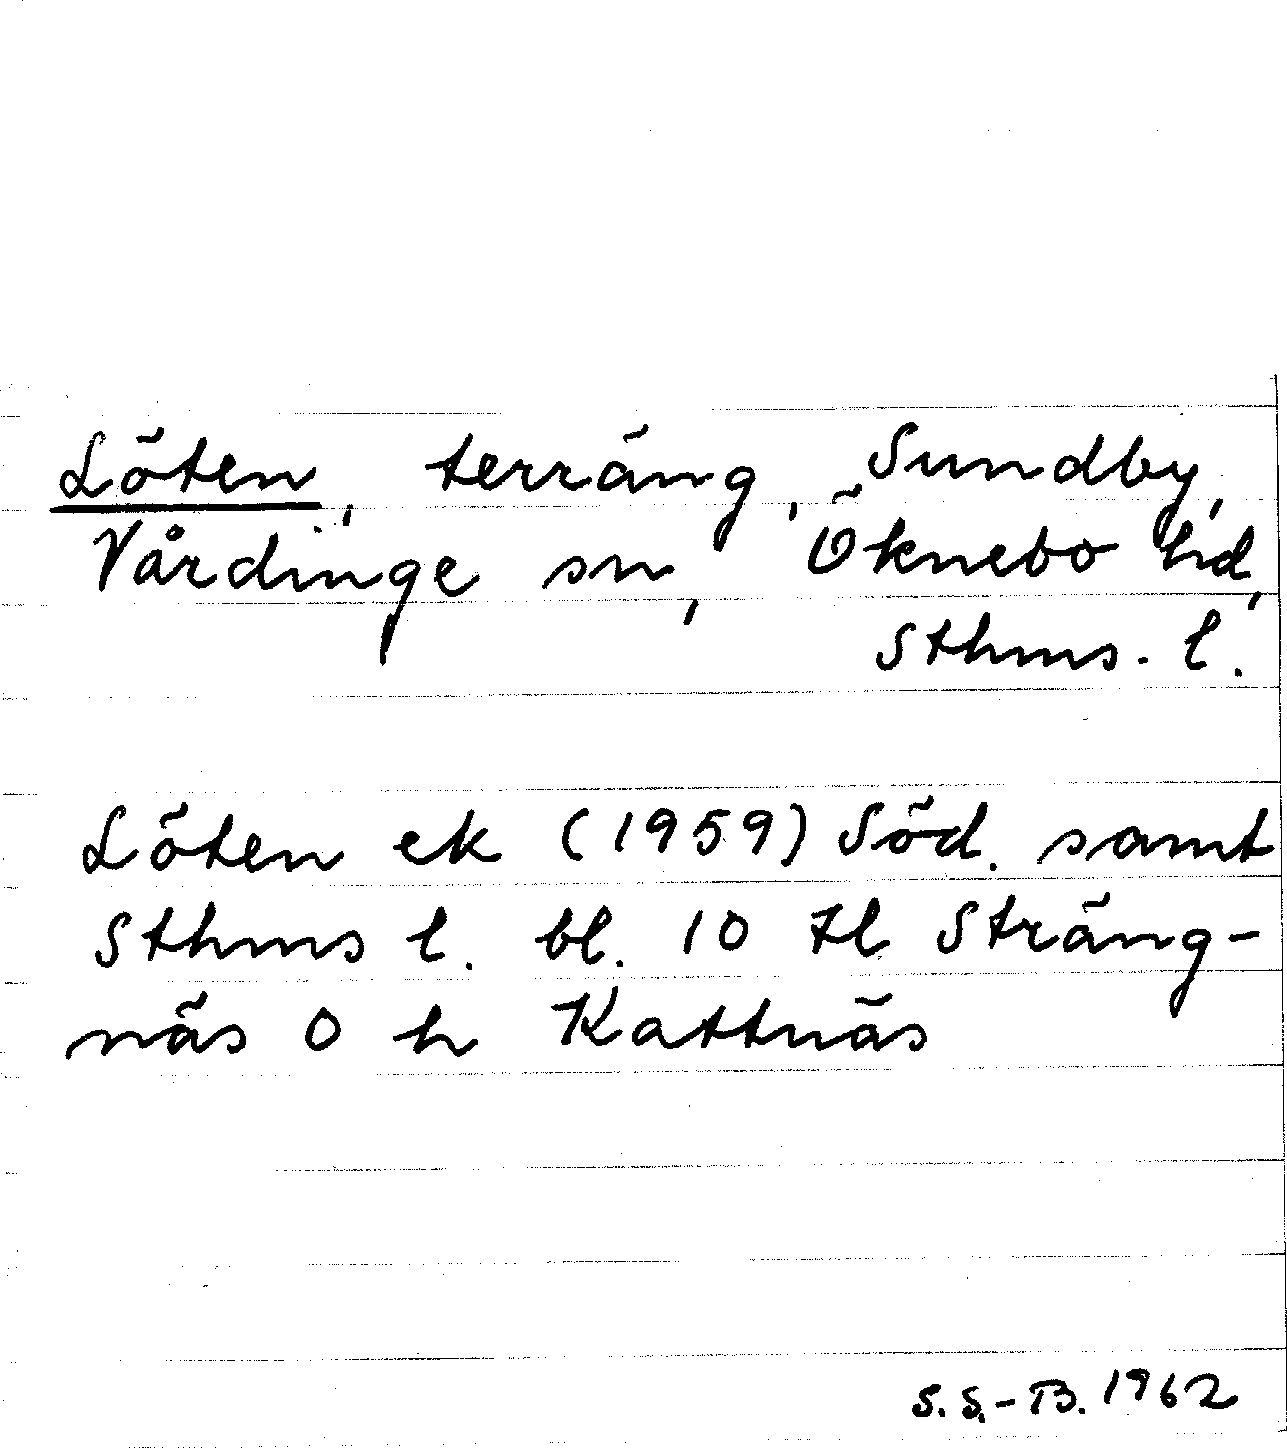 Löten, terräng, Sundby,
Vårdinge sn, Öknebo hd,
Sthms. l.
Löten ek (1959) Söd. samt
Sthms l. bl. 10 tl Sträng-
näs O h Kattnäs
S.S.-B. 1962